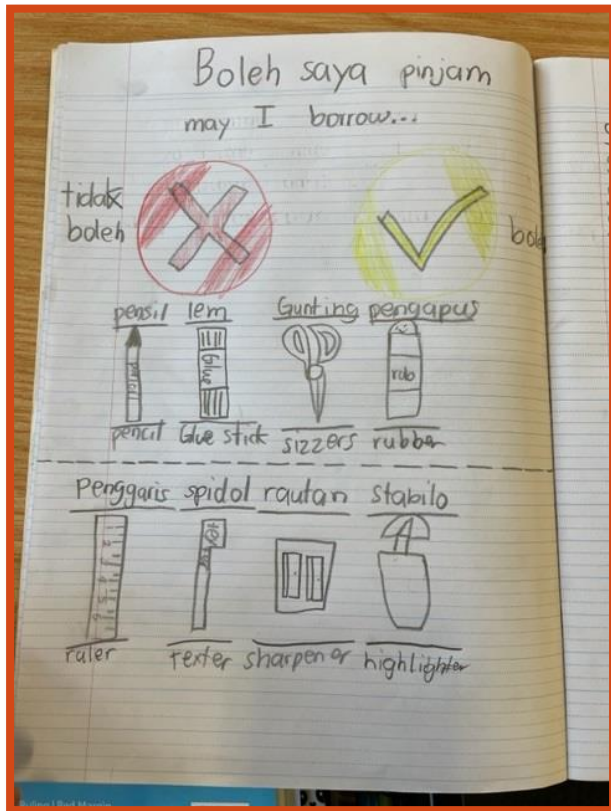 Boleh saya pinjam
may I borrow...
tidak
boleh
boleh
pensil lem Gunting pengapus
pencil
Glue
rub
pencil Glue stick sizzers rubber
Penggaris spidol rautan Stabilo
ruler texter sharpener highlighter